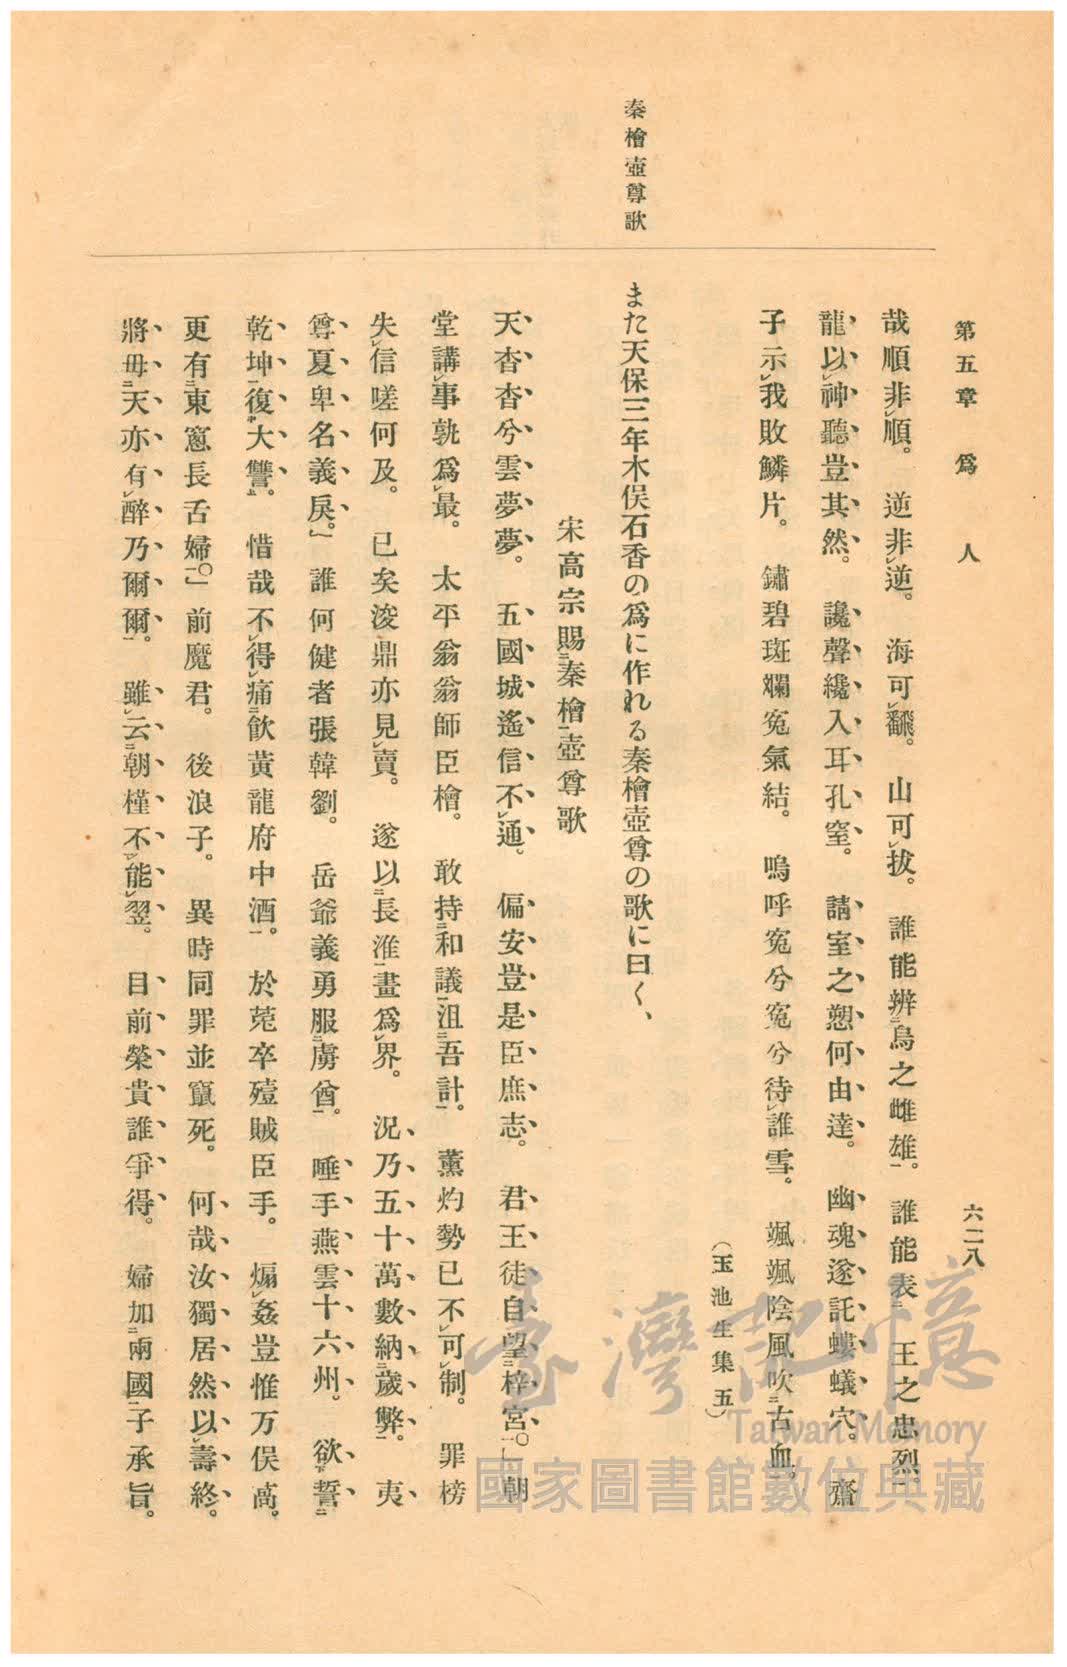 第五章　爲　人
六二八
秦檜壺尊歌
哉順非レ順。逆非レ逆。海可レ飜。山可レ拔。誰能辨二烏之雌雄一。誰能表二王之忠烈一
龍以レ神聽豈其然。讒聲纔入耳孔窒。請室之愬何由達。幽魂遂託螻蟻穴。齋
子示レ我敗鱗片。鏽碧斑斕寃氣結。嗚呼寃兮寃兮待レ誰雪。颯颯陰風吹二古血一。
（玉池生集五）
また天保三年木俣石香の爲に作れる秦檜壺尊の歌に曰く、
宋高宗賜二秦檜一壺尊歌
天杳杳兮雲夢夢。五國城遙信不レ通。偏安豈是臣庶志。君王徒自望二梓宮一。」朝
堂講レ事孰爲レ最。太平翁翁師臣檜。敢持二和議一沮二吾計一。薰灼勢已不レ可レ制。罪榜
失レ信嗟何及。已矣浚鼎亦見レ賣。遂以二長淮一畫爲レ界。況乃五十萬數納二歲弊一。夷
尊夏卑名義戾。」誰何健者張韓劉。岳爺義勇服二虜酋一。唾手燕雲十六州。欲下誓二
乾坤一復中大讐上。惜哉不レ得レ痛二飮黃龍府中酒一。於菟卒殪賊臣手。煽レ姦豈惟万俟卨。
更有二東窻長舌婦一。」前魔君。後浪子。異時同罪並竄死。何哉汝獨居然以レ壽終。
將毋二天亦有レ醉乃爾爾一。雖レ云二朝槿不レ能レ翌。目前榮貴誰爭得。婦加二兩國一子承旨。
臺灣記憶
Taiwan Memory
國家圖書館數位典藏